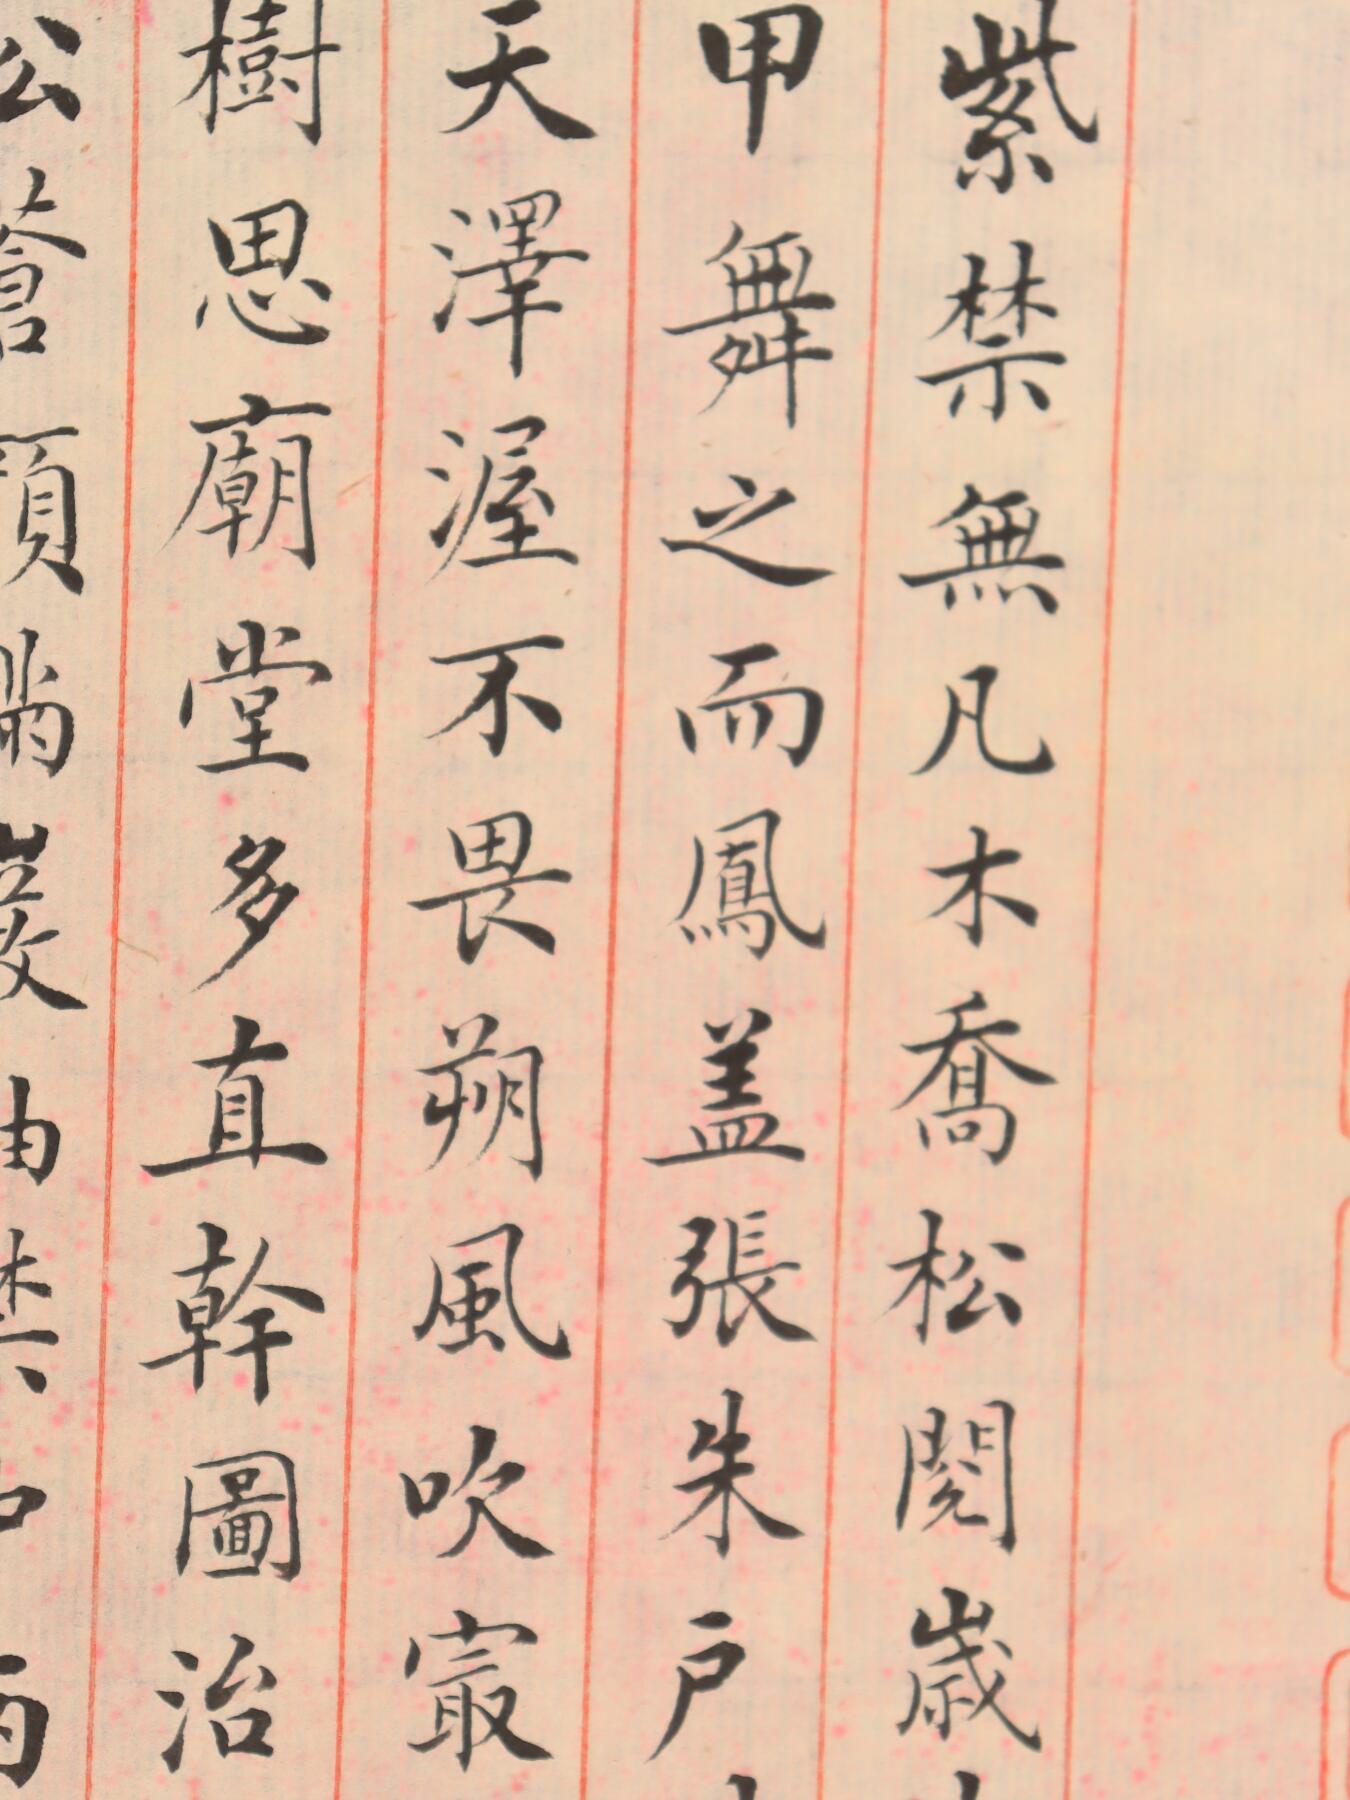 紫禁無凡木喬松閱歲
甲舞之而鳳蓋張朱戶
天澤渥不畏朔風吹㝡
樹思廟堂多直幹圖治
公蒼須